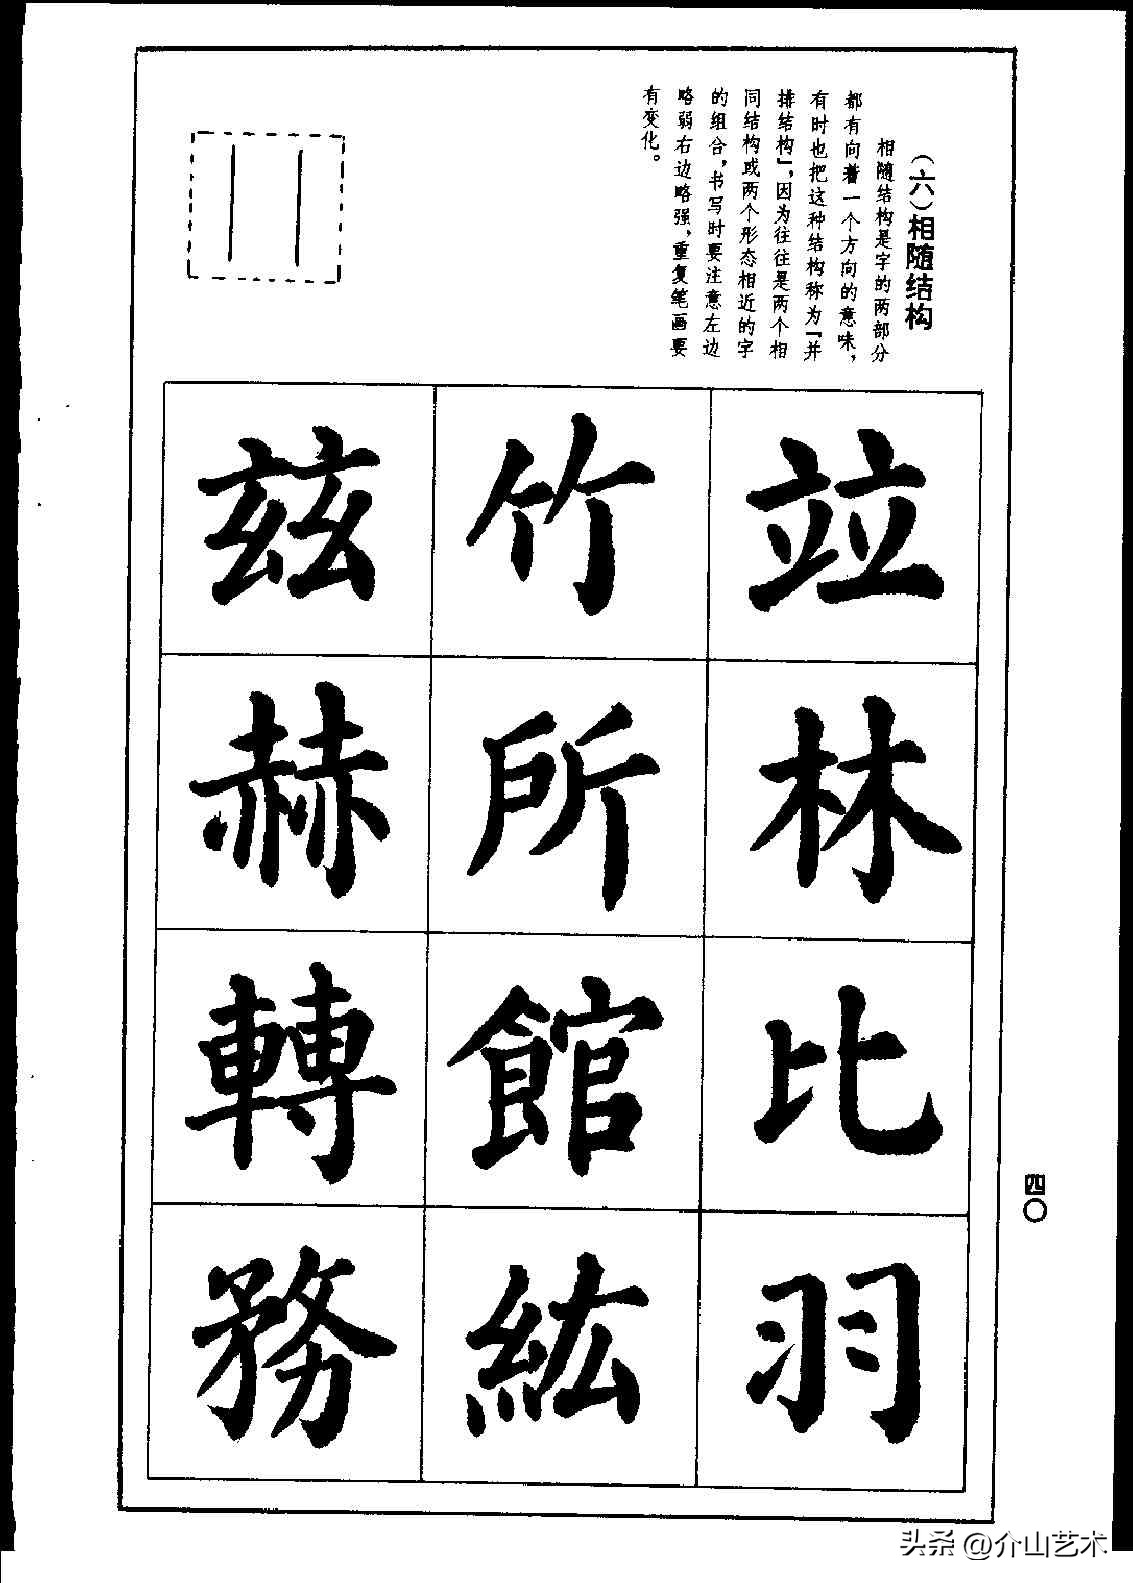 （六）相随结构
相随结构是字的两部分
都有向着一个方向的意味，
有时也把这种结构称为「并
排结构」，因为往往是两个相
同结构或两个形态相近的字
的组合，书写时要注意左边
略弱右边略强，重复笔画要
有变化。
竝林比羽
竹所館紘
兹赫轉務
四〇
头条 @介山艺术